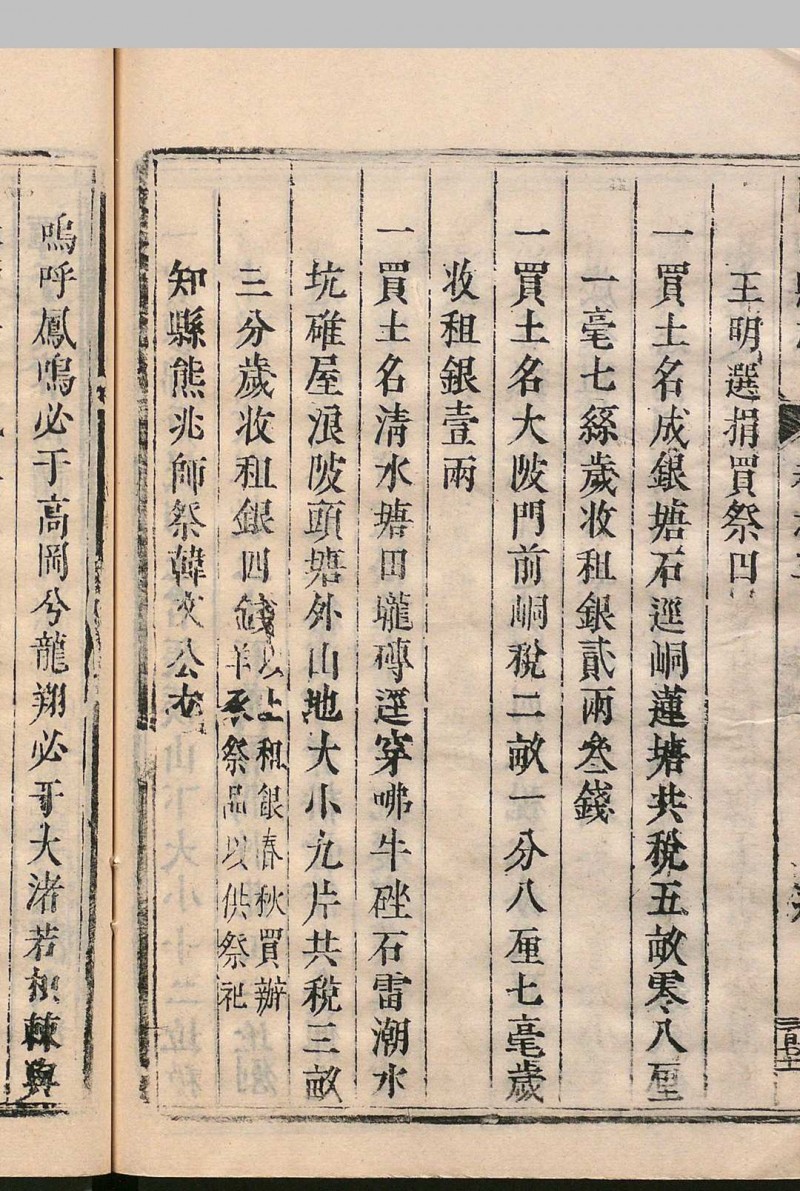 王明選捐買祭田
一買土名成銀塘石逕峒蓮塘共稅五畝零八厘
一毫七絲歲收租銀貳兩叁錢
一買土名大陂門前峒稅二畝一分八厘七毫歲
收租銀壹兩
一買土名清水塘田壠磚逕穿咈牛硂石雷潮水
坑碓屋浪陂頭塘外山地大小九片共稅三畝
三分歲收租銀四錢以上租銀春秋買辦
羊豕祭品以供祭祀
知縣熊兆師祭韓文公
嗚呼鳳鳴必于高岡兮龍翔必于大渚若枳棘與